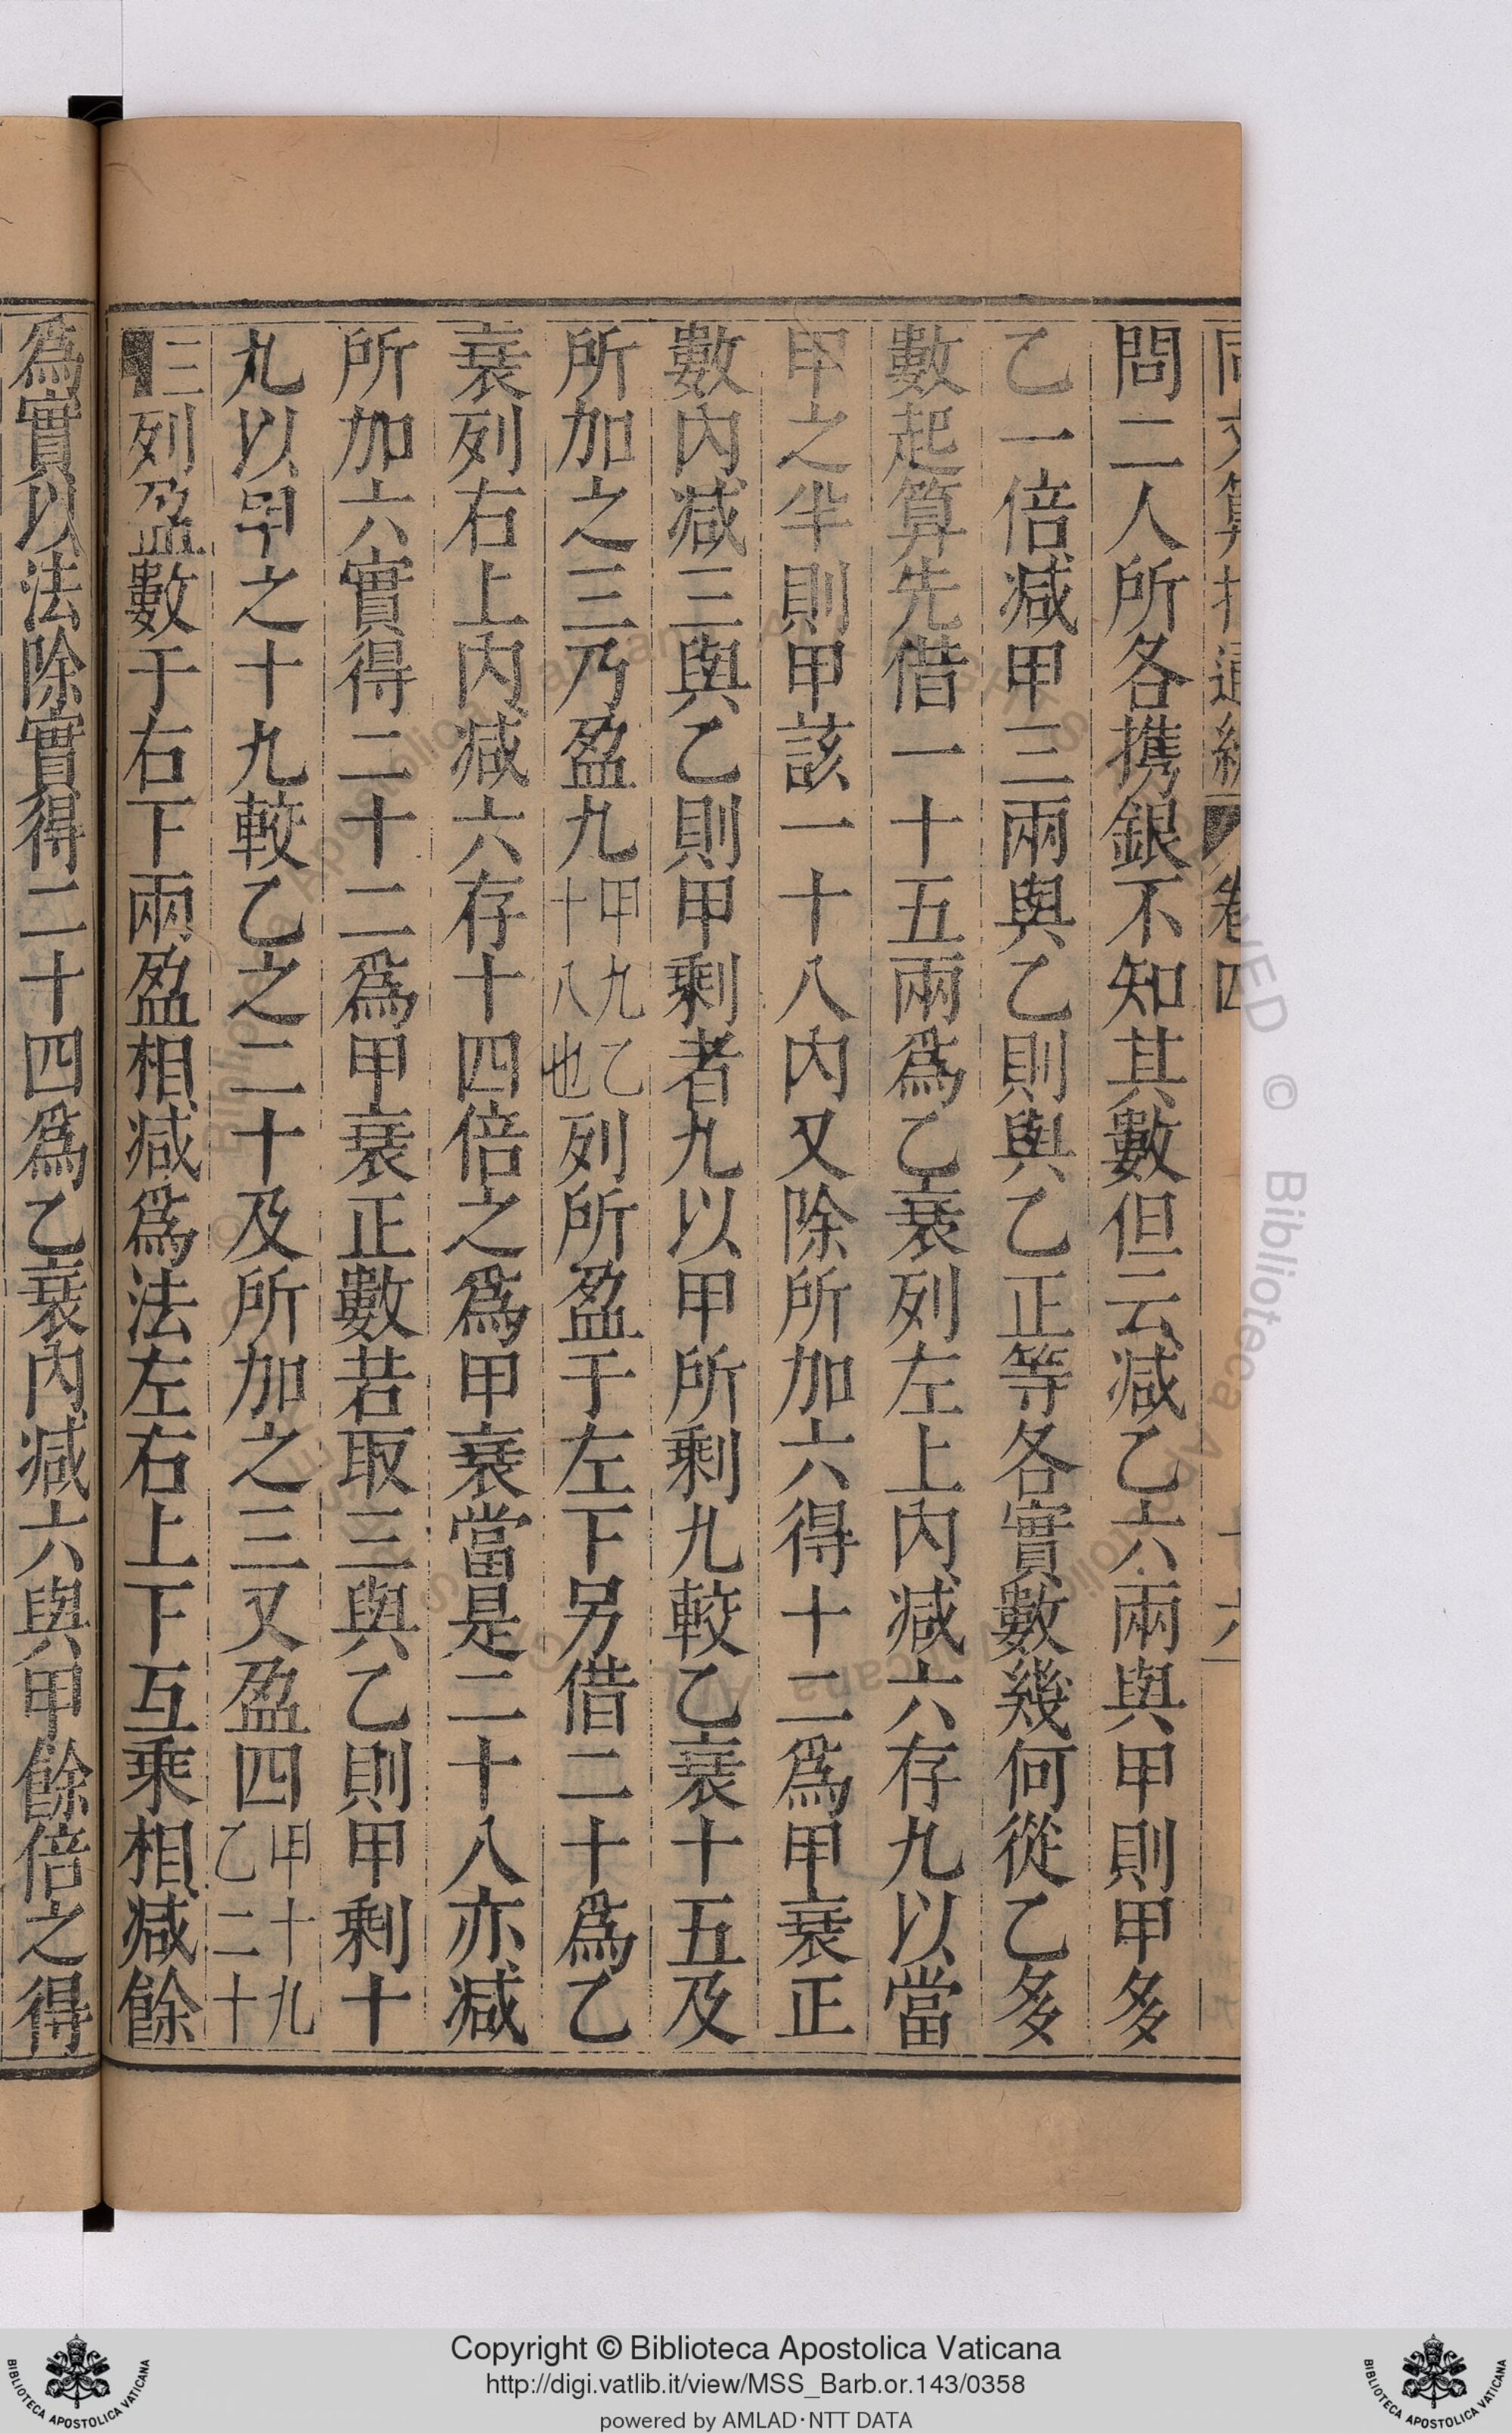 同文算指通編 卷四 十六
問二人所各携銀不知其數但云减乙六兩與甲則甲多
乙一倍减甲三兩與乙則與乙正等各實數幾何從乙多
數起算先借一十五兩爲乙衰列左上内减六存九以當
甲之半則甲該一十八内又除所加六得十二爲甲衰正
數内减三與乙則甲剩者九以甲所剩九較乙衰十五及
所加之三乃盈九甲九乙十八也列所盈于左下另借二十爲乙
衰列右上内减六存十四倍之爲甲衰當是二十八亦减
所加六實得二十二爲甲衰正數若取三與乙則甲剩十
九以甲之十九較乙之二十及所加之三又盈四甲十九乙二十
三列盈數于右下兩盈相减爲法左右上下互乘相减餘
爲實以法除實得二十四爲乙衰内减六與甲餘倍之得
Copyright © Biblioteca Apostolica Vaticana
http://digi.vatlib.it/view/MSS_Barb.or.143/0358
powered by AMLAD·NTT DATA
BIBLIOTECA APOSTOLICA VATICANA
BIBLIOTECA APOSTOLICA VATICANA